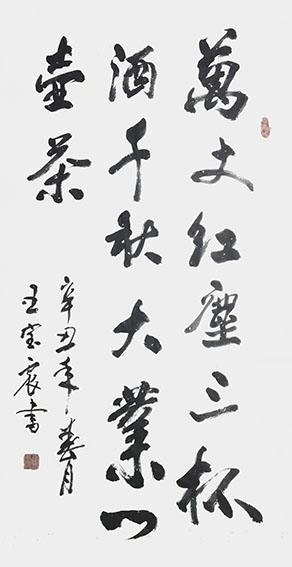 萬丈红塵三杯
酒千秋大業一
壶茶
辛丑年春月
王宝宸書